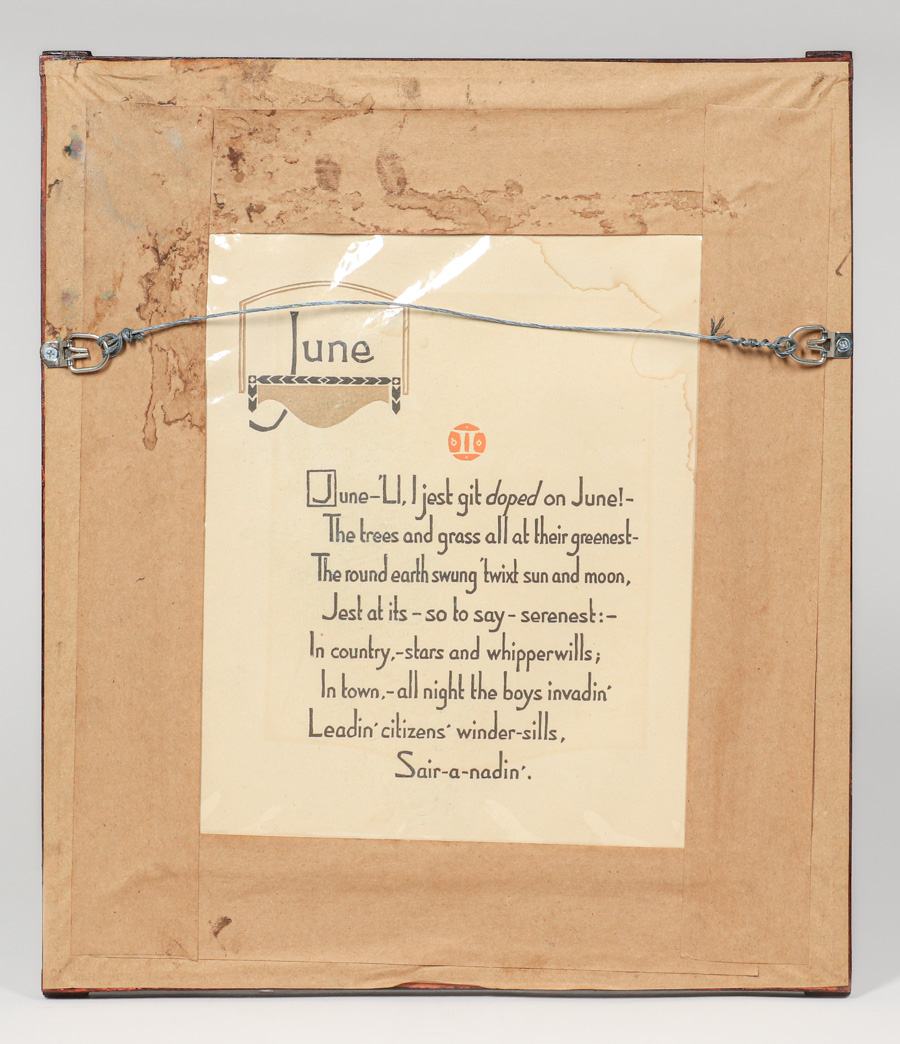 June
June-'Ll, I jest git doped on June!-
The trees and grass all at their greenest-
The round earth swung 'twixt sun and moon,
Jest at its - so to say - serenest:-
In country,-stars and whipperwills;
In town,-all night the boys invadin'
Leadin' citizens' winder-sills,
Sair-a-nadin'.